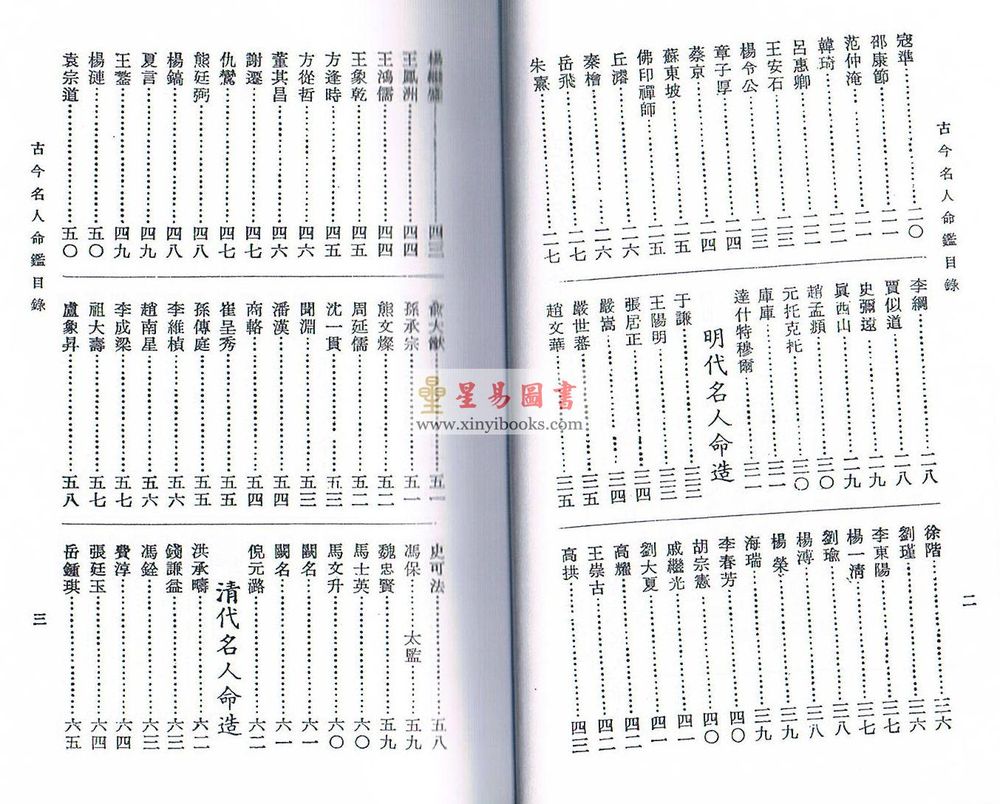 古今名人命鑑目錄
二
寇準……二〇
邵康節……二一
范仲淹……二一
韓琦……二二
呂惠卿……二二
王安石……二三
楊令公……二三
章子厚……二四
蔡京……二四
蘇東坡……二五
佛印禪師……二五
丘濬……二六
秦檜……二六
岳飛……二七
朱熹……二七
李綱……二八
賈似道……二八
史彌遠……二九
眞西山……二九
趙孟頫……三〇
元托克托……三〇
庫庫……三一
達什特穆爾……三一
明代名人命造
于謙……三三
王陽明……三三
張居正……三四
嚴嵩……三四
嚴世蕃……三五
趙文華……三五
徐階……三六
劉瑾……三六
李東陽……三七
楊一清……三七
劉瑜……三八
楊溥……三八
楊榮……三九
海瑞……三九
李春芳……四〇
胡宗憲……四〇
戚繼光……四一
劉大夏……四一
高耀……四二
王崇古……四二
高拱……四三
楊繼盛……四三
王鳳洲……四四
王鴻儒……四四
王象乾……四五
方逢時……四五
方從哲……四六
董其昌……四六
謝遷……四七
仇鸞……四七
熊廷弼……四八
楊鎬……四八
夏言……四九
王鏊……四九
楊漣……五〇
袁宗道……五〇
俞大猷……五一
孫承宗……五一
熊文燦……五二
周延儒……五二
沈一貫……五三
聞淵……五三
潘漢……五四
商輅……五四
崔呈秀……五五
孫傳庭……五五
李維楨……五六
趙南星……五六
李成梁……五七
祖大壽……五七
盧象昇……五八
史可法……五八
馮保……太監……五九
魏忠賢……五九
馬士英……六〇
馬文升……六〇
闕名……六一
闕名……六一
倪元璐……六二
清代名人命造
洪承疇……六二
錢謙益……六三
馮銓……六三
費淳……六四
張廷玉……六四
岳鍾琪……六五
古今名人命鑑目錄
三
星易圖書
www.xinyibooks.com